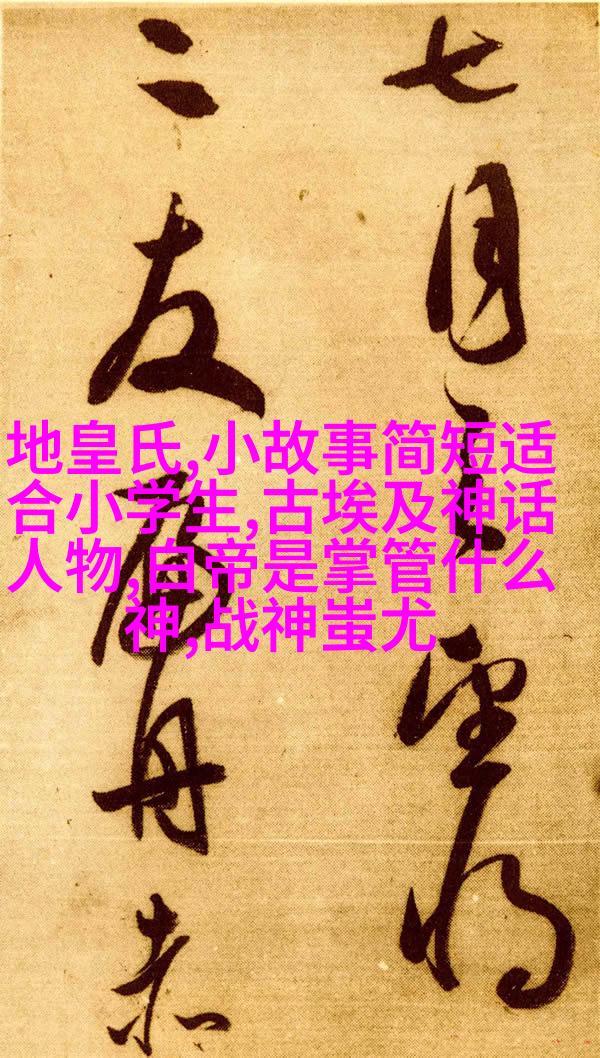 七月望将
二友舟赤
地皇氏,小故事简短适
合小学生,古埃及神话
人物,白帝是掌管什么
神,战神蚩尤